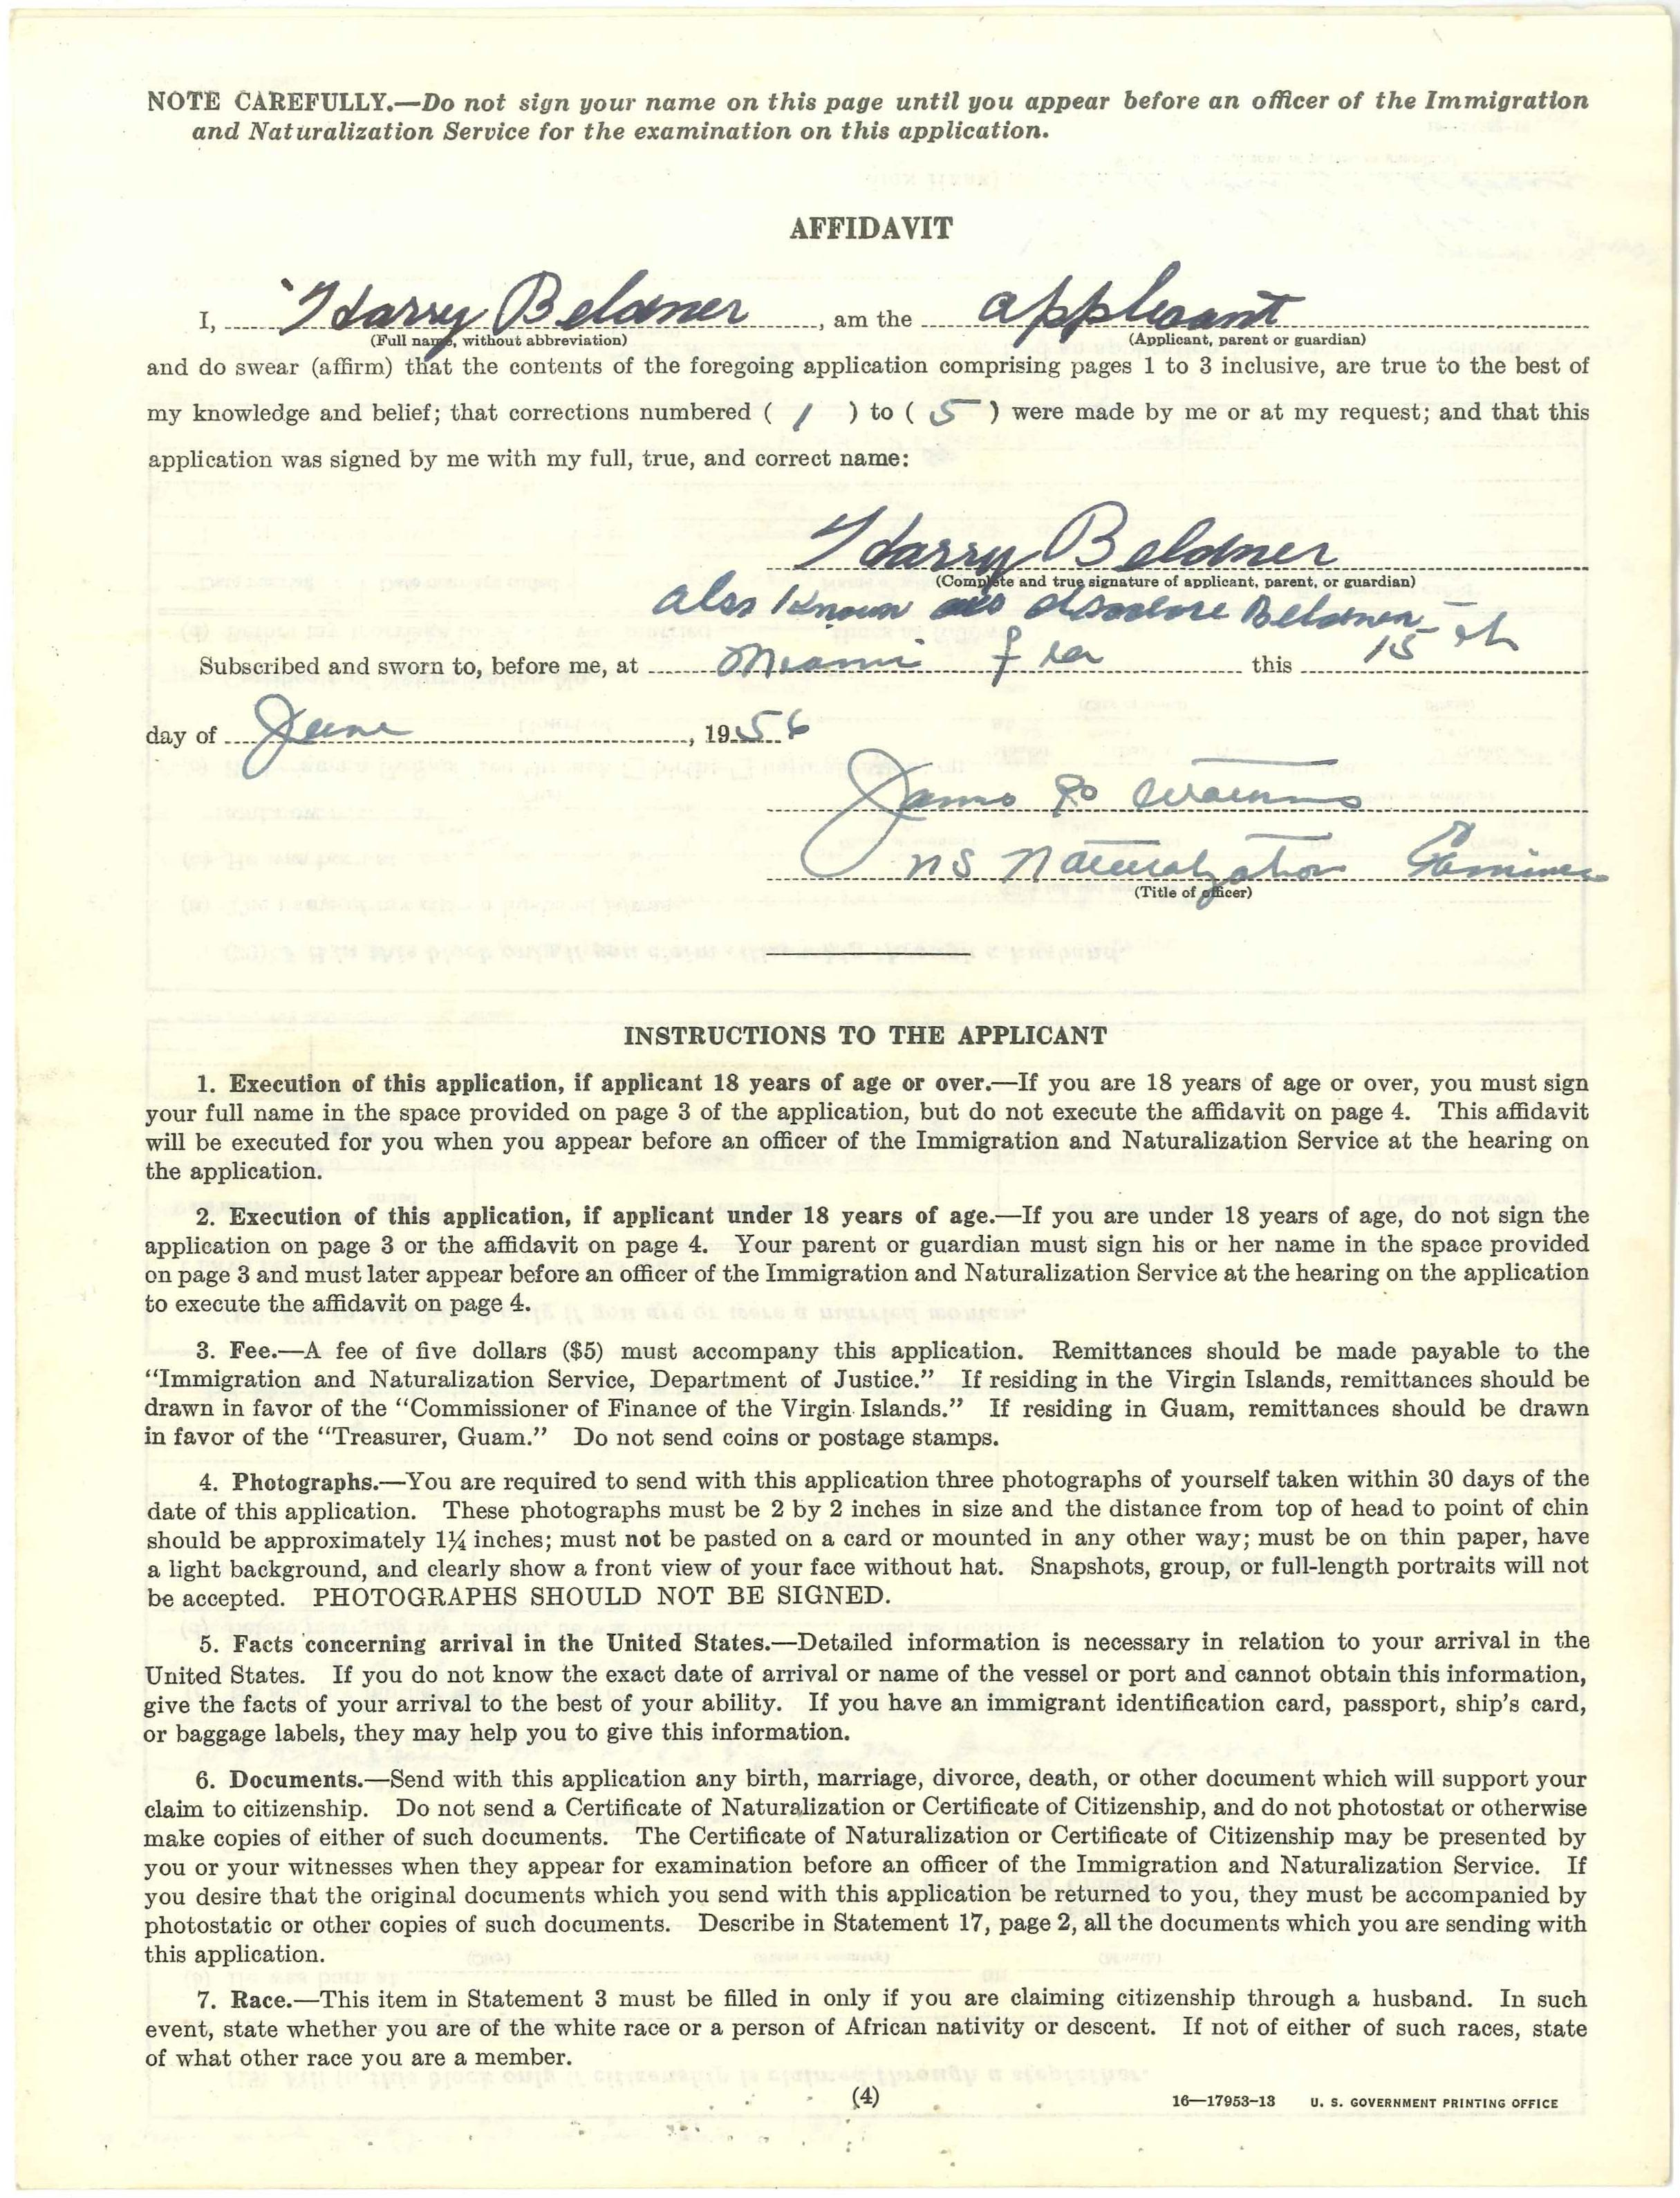 NOTE CAREFULLY.—Do not sign your name on this page until you appear before an officer of the Immigration
and Naturalization Service for the examination on this application.
AFFIDAVIT
I, Harry Beldner, am the applicant
(Full name, without abbreviation) (Applicant, parent or guardian)
and do swear (affirm) that the contents of the foregoing application comprising pages 1 to 3 inclusive, are true to the best of
my knowledge and belief; that corrections numbered ( 1 ) to ( 5 ) were made by me or at my request; and that this
application was signed by me with my full, true, and correct name:
Harry Beldner
(Complete and true signature of applicant, parent, or guardian)
also known as Beldner
Subscribed and sworn to, before me, at Miami Fla this 15th
day of June, 1956
James
NS Naturalization Examiner
(Title of officer)
INSTRUCTIONS TO THE APPLICANT
1. Execution of this application, if applicant 18 years of age or over.—If you are 18 years of age or over, you must sign
your full name in the space provided on page 3 of the application, but do not execute the affidavit on page 4. This affidavit
will be executed for you when you appear before an officer of the Immigration and Naturalization Service at the hearing on
the application.
2. Execution of this application, if applicant under 18 years of age.—If you are under 18 years of age, do not sign the
application on page 3 or the affidavit on page 4. Your parent or guardian must sign his or her name in the space provided
on page 3 and must later appear before an officer of the Immigration and Naturalization Service at the hearing on the application
to execute the affidavit on page 4.
3. Fee.—A fee of five dollars ($5) must accompany this application. Remittances should be made payable to the
"Immigration and Naturalization Service, Department of Justice." If residing in the Virgin Islands, remittances should be
drawn in favor of the "Commissioner of Finance of the Virgin Islands." If residing in Guam, remittances should be drawn
in favor of the "Treasurer, Guam." Do not send coins or postage stamps.
4. Photographs.—You are required to send with this application three photographs of yourself taken within 30 days of the
date of this application. These photographs must be 2 by 2 inches in size and the distance from top of head to point of chin
should be approximately 1¼ inches; must not be pasted on a card or mounted in any other way; must be on thin paper, have
a light background, and clearly show a front view of your face without hat. Snapshots, group, or full-length portraits will not
be accepted. PHOTOGRAPHS SHOULD NOT BE SIGNED.
5. Facts concerning arrival in the United States.—Detailed information is necessary in relation to your arrival in the
United States. If you do not know the exact date of arrival or name of the vessel or port and cannot obtain this information,
give the facts of your arrival to the best of your ability. If you have an immigrant identification card, passport, ship's card,
or baggage labels, they may help you to give this information.
6. Documents.—Send with this application any birth, marriage, divorce, death, or other document which will support your
claim to citizenship. Do not send a Certificate of Naturalization or Certificate of Citizenship, and do not photostat or otherwise
make copies of either of such documents. The Certificate of Naturalization or Certificate of Citizenship may be presented by
you or your witnesses when they appear for examination before an officer of the Immigration and Naturalization Service. If
you desire that the original documents which you send with this application be returned to you, they must be accompanied by
photostatic or other copies of such documents. Describe in Statement 17, page 2, all the documents which you are sending with
this application.
7. Race.—This item in Statement 3 must be filled in only if you are claiming citizenship through a husband. In such
event, state whether you are of the white race or a person of African nativity or descent. If not of either of such races, state
of what other race you are a member.
(4)
16—17953-13 U. S. GOVERNMENT PRINTING OFFICE